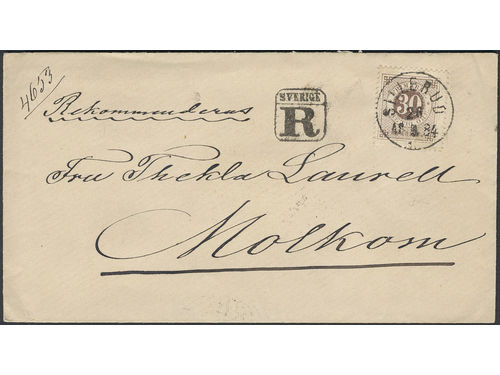 4653
Rekommenderas
SVERIGE
R
30
SILLERUD
Fru Thekla Laurell
Molkom